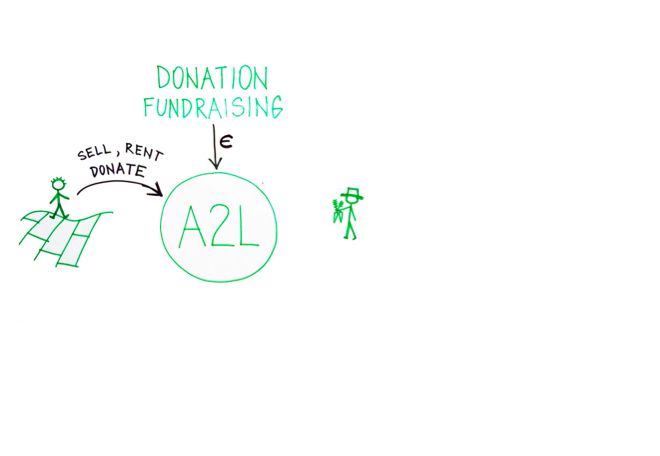 DONATION
FUNDRAISING
€
SELL, RENT
DONATE
A2L